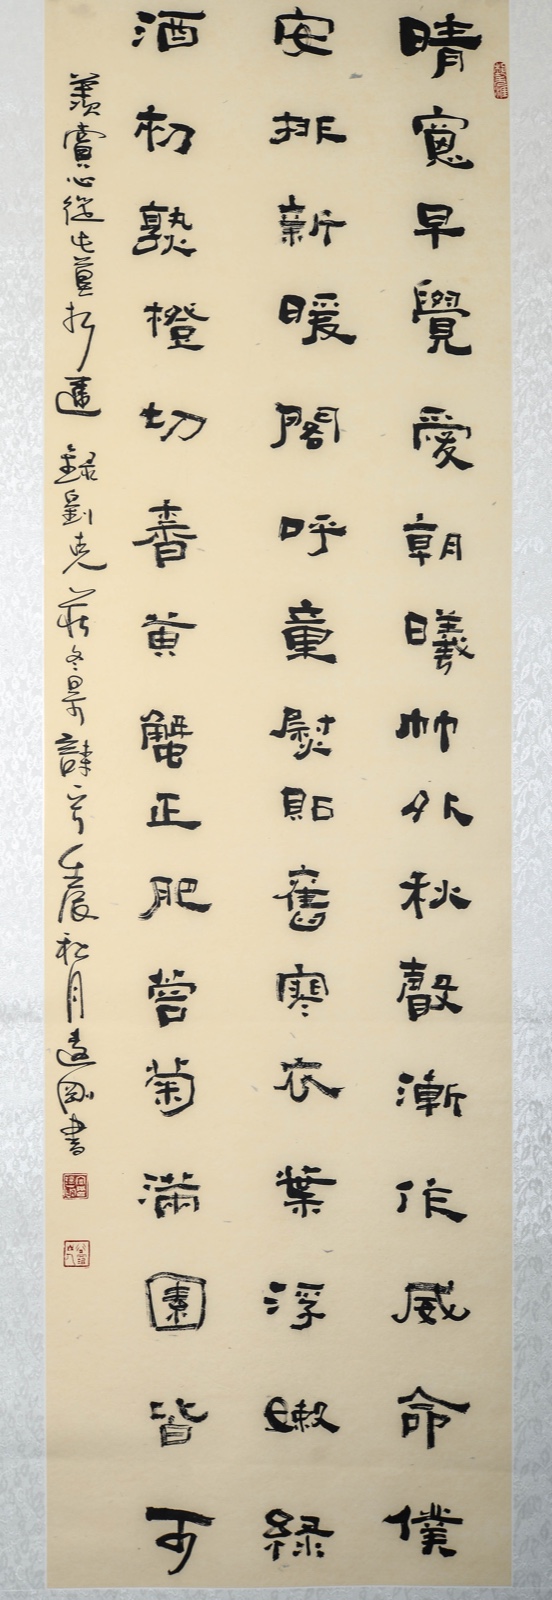 晴窻早覺愛朝曦竹外秋聲漸作威命僕
安排新暖閣呼童熨貼舊寒衣葉浮嫩綠
酒初熟橙切香黃蟹正肥蓉菊滿園皆可
羨賞心從此莫相違 錄劉克莊冬景詩一首壬辰秋月書